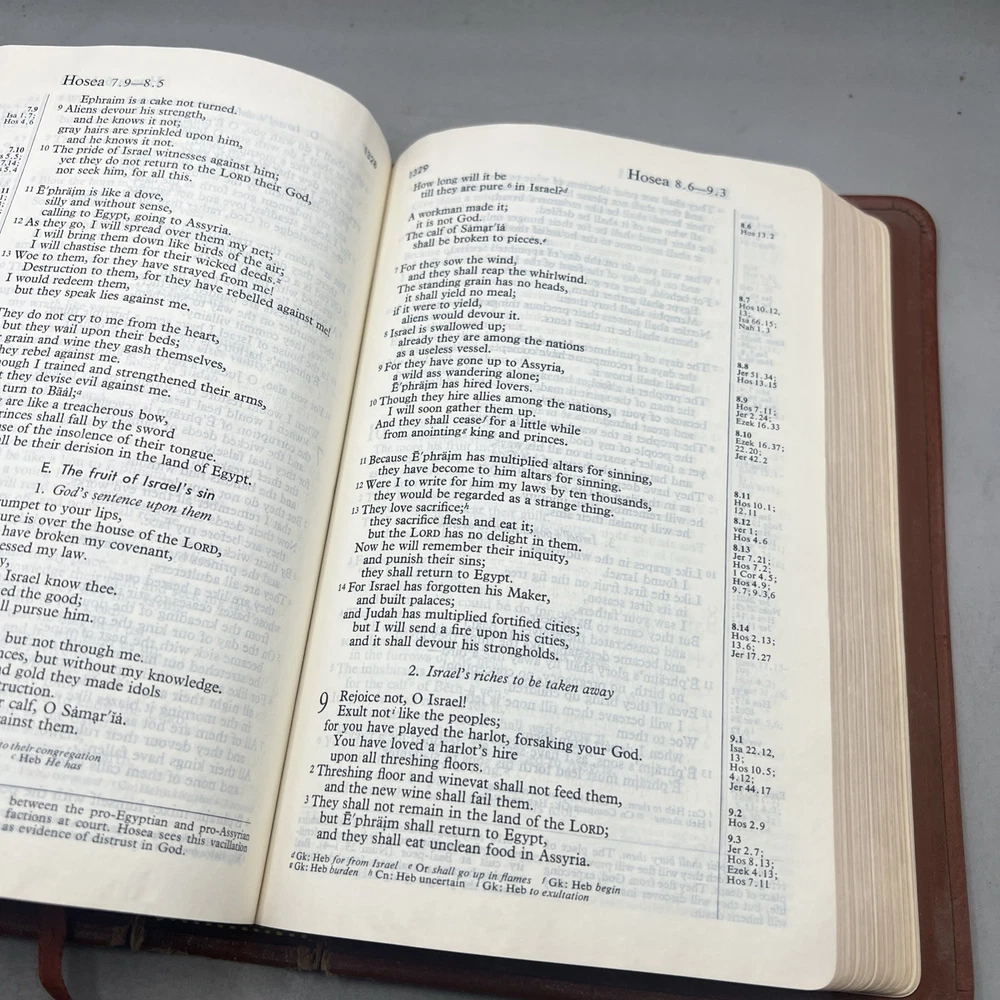 Hosea 7.9—8.5
1328
7.9
Isa 1.7;
Hos 4.6
7.10
5.5;
7.14;
5.4
Ephraim is a cake not turned.
9 Aliens devour his strength,
and he knows it not;
gray hairs are sprinkled upon him,
and he knows it not.
10 The pride of Israel witnesses against him;
yet they do not return to the LORD their God,
nor seek him, for all this.
11 Ē′phräim is like a dove,
silly and without sense,
calling to Egypt, going to Assyria.
12 As they go, I will spread over them my net;
I will bring them down like birds of the air;
I will chastise them for their wicked deeds.z
13 Woe to them, for they have strayed from me!
Destruction to them, for they have rebelled against me!
I would redeem them,
but they speak lies against me.
They do not cry to me from the heart,
but they wail upon their beds;
grain and wine they gash themselves,
they rebel against me.
though I trained and strengthened their arms,
they devise evil against me.
turn to Bāál;a
are like a treacherous bow,
princes shall fall by the sword
of the insolence of their tongue.
be their derision in the land of Egypt.
E. The fruit of Israel's sin
1. God's sentence upon them
trumpet to your lips,
is over the house of the LORD,
have broken my covenant,
my law.
Israel know thee.
the good;
pursue him.
but not through me.
but without my knowledge.
gold they made idols
calf, O Sámạr′īá.
against them.
to their congregation
c Heb He has
between the pro-Egyptian and pro-Assyrian
factions at court. Hosea sees this vacillation
as evidence of distrust in God.
1329
Hosea 8.6—9.3
How long will it be
till they are pure b in Israel?d
A workman made it;
it is not God.
The calf of Sámạr′īá
shall be broken to pieces.e
7 For they sow the wind,
and they shall reap the whirlwind.
The standing grain has no heads,
it shall yield no meal;
if it were to yield,
aliens would devour it.
8 Israel is swallowed up;
already they are among the nations
as a useless vessel.
9 For they have gone up to Assyria,
a wild ass wandering alone;
Ē′phräim has hired lovers.
10 Though they hire allies among the nations,
I will soon gather them up.
And they shall ceasef for a little while
from anointingg king and princes.
11 Because Ē′phräim has multiplied altars for sinning,
they have become to him altars for sinning.
12 Were I to write for him my laws by ten thousands,
they would be regarded as a strange thing.
13 They love sacrifice;h
they sacrifice flesh and eat it;
but the LORD has no delight in them.
Now he will remember their iniquity,
and punish their sins;
they shall return to Egypt.
14 For Israel has forgotten his Maker,
and built palaces;
and Judah has multiplied fortified cities;
but I will send a fire upon his cities,
and it shall devour his strongholds.
2. Israel's riches to be taken away
9 Rejoice not, O Israel!
Exult noti like the peoples;
for you have played the harlot, forsaking your God.
You have loved a harlot's hire
upon all threshing floors.
2 Threshing floor and winevat shall not feed them,
and the new wine shall fail them.
3 They shall not remain in the land of the LORD;
but Ē′phräim shall return to Egypt,
and they shall eat unclean food in Assyria.
d Gk: Heb for from Israel e Or shall go up in flames f Gk: Heb begin
g Gk: Heb burden h Cn: Heb uncertain i Gk: Heb to exultation
8.6
Hos 13.2
8.7
Hos 10.12,
13;
Isa 66.15;
Nah 1.3
8.8
Jer 51.34;
Hos 13.15
8.9
Hos 7.11;
Jer 2.24;
Ezek 16.33
8.10
Ezek 16.37;
22.20;
Jer 42.2
8.11
Hos 10.1;
12.11
8.12
ver 1;
Hos 4.6
8.13
Jer 7.21;
Hos 7.2;
1 Cor 4.5;
Hos 4.9;
9.7; 9.3,6
8.14
Hos 2.13;
13.6;
Jer 17.27
9.1
Isa 22.12,
13;
Hos 10.5;
4.12;
Jer 44.17
9.2
Hos 2.9
9.3
Jer 2.7;
Hos 8.13;
Ezek 4.13;
Hos 7.11